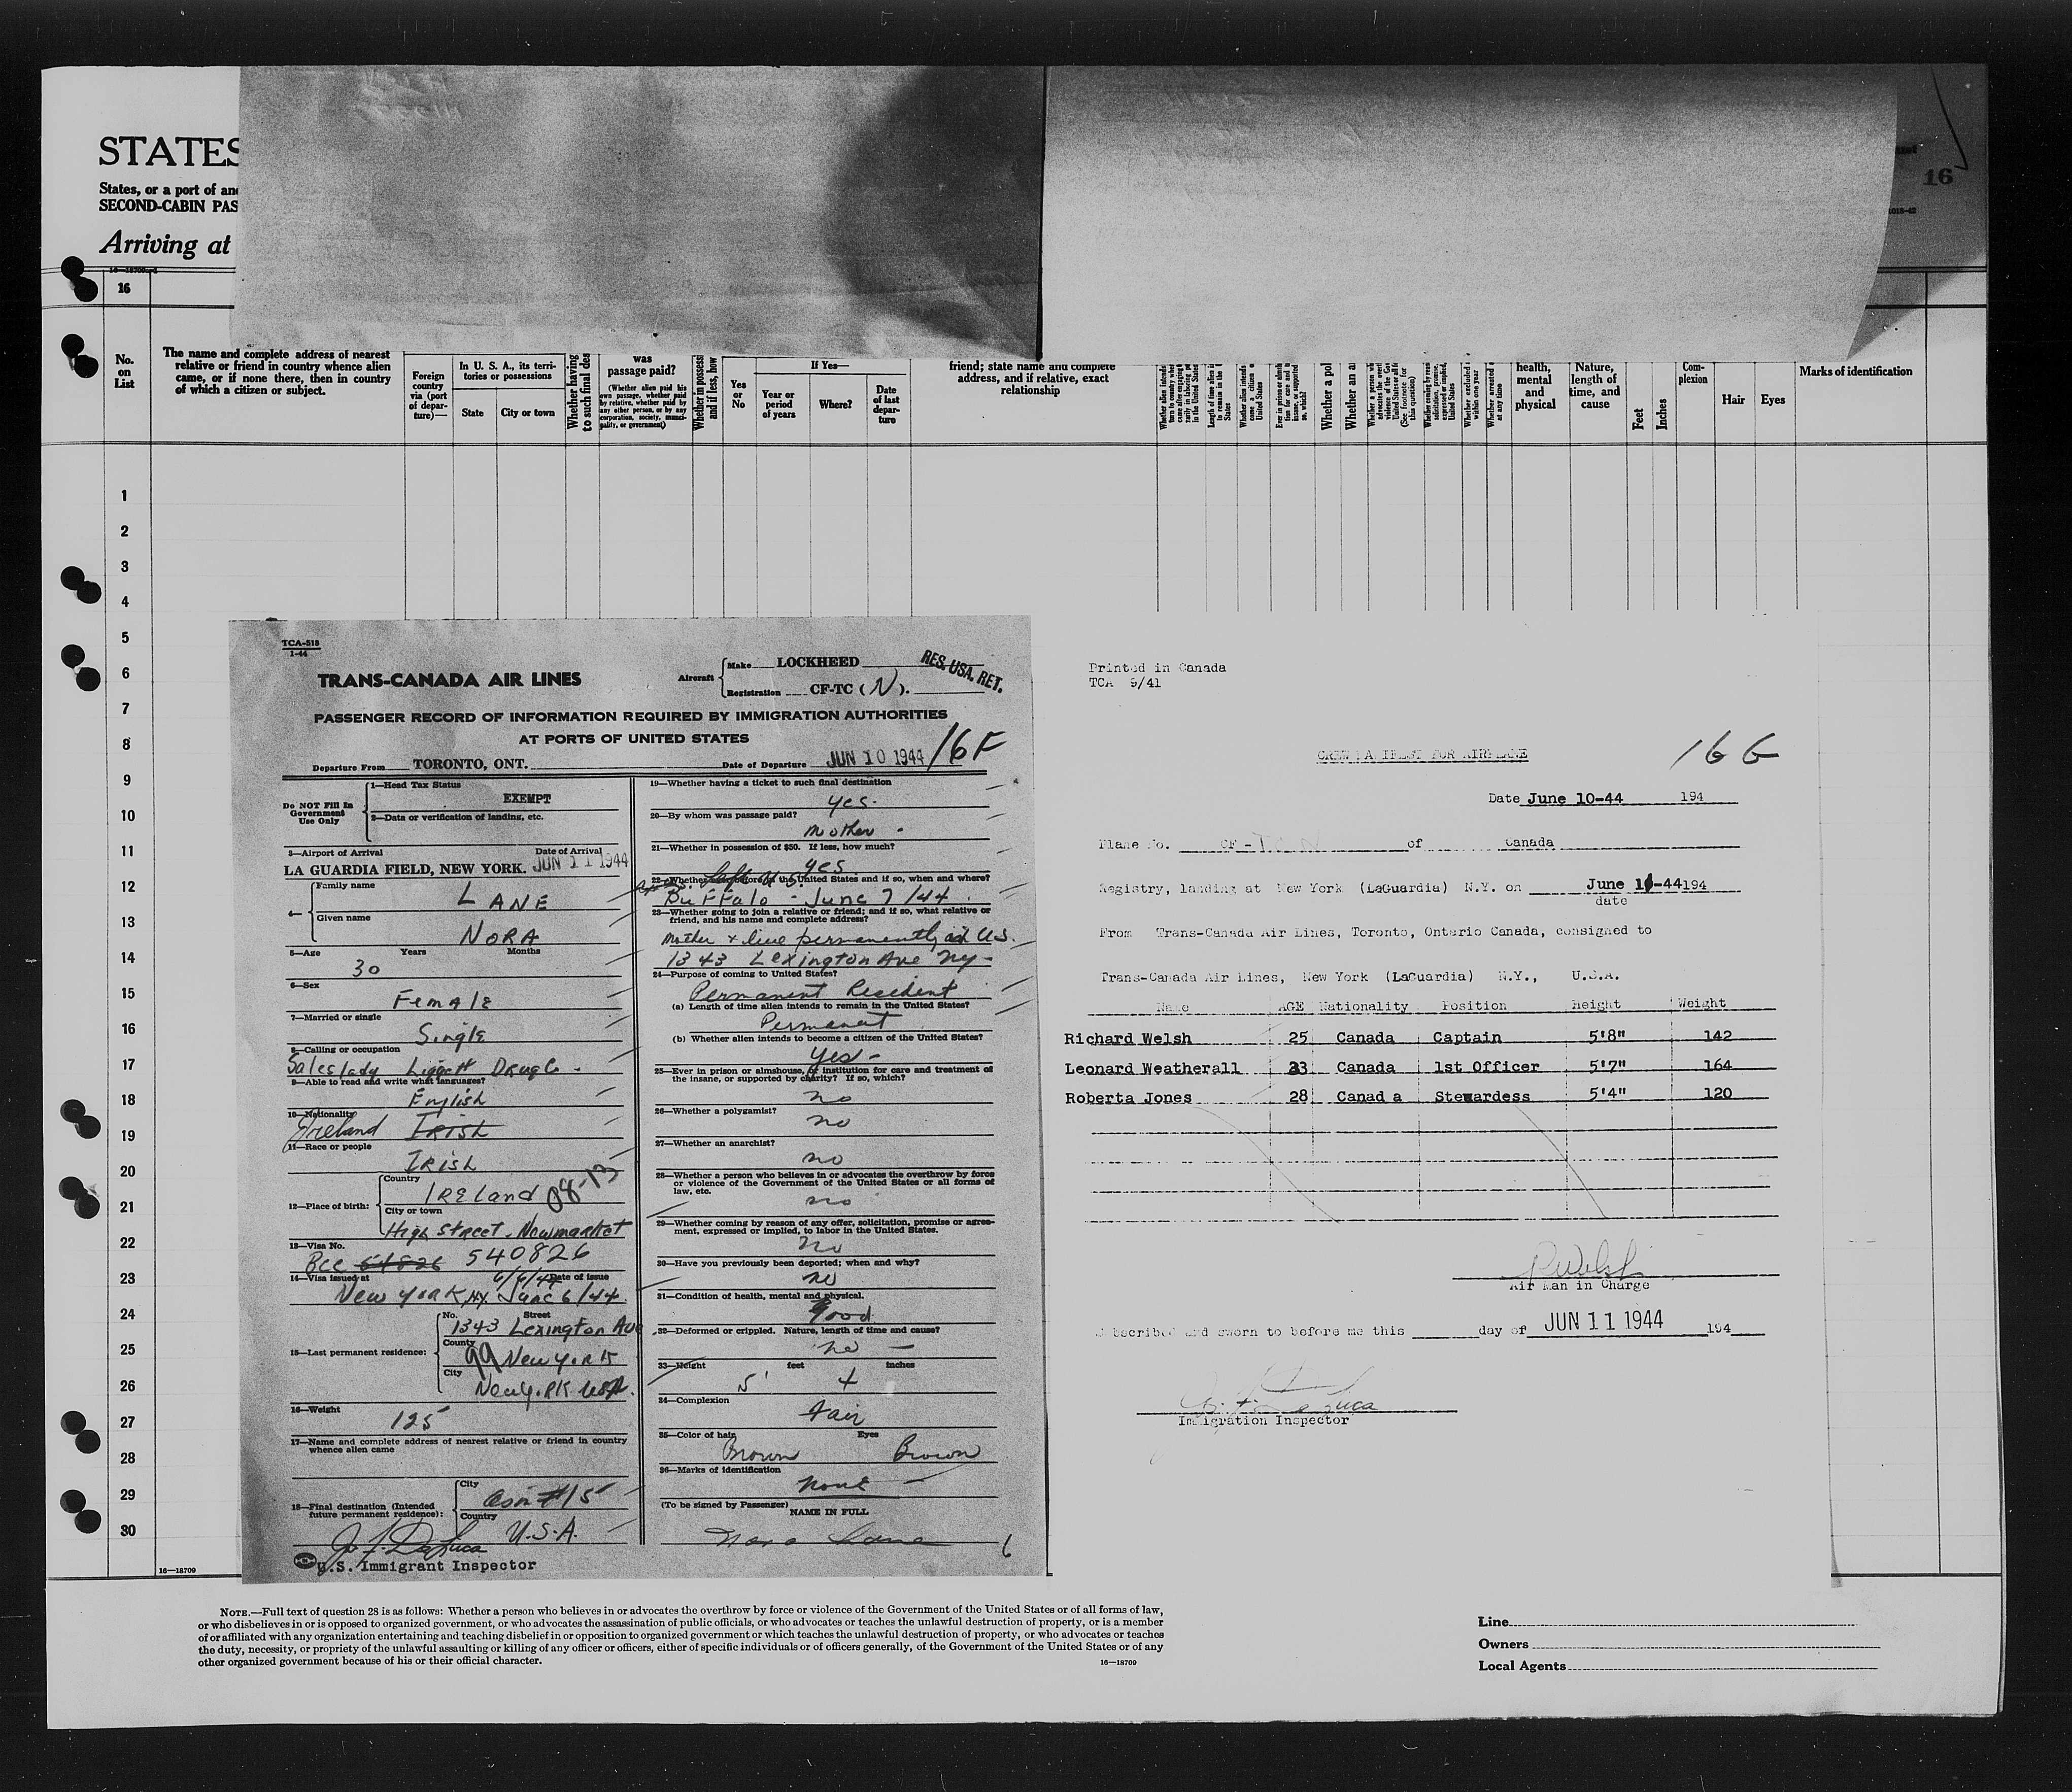 STATES
States, or a port of an
SECOND-CABIN PAS
Arriving at
16
16
No.
on
List
The name and complete address of nearest
relative or friend in country whence alien
came, or if none there, then in country
of which a citizen or subject.
Foreign
country
via (port
of depar-
ture)—
In U. S. A., its terri-
tories or possessions
State
City or town
Whether having
to such final des
was
passage paid?
(Whether alien paid his
own passage, whether paid
by relative, whether paid by
any other person, or by any
corporation, society, munici-
pality, or government)
Whether in possess
and if less, how
Yes
or
No
If Yes—
Year or
period
of years
Where?
Date
of last
depar-
ture
friend; state name and complete
address, and if relative, exact
relationship
Whether a pol
Whether an a
health,
mental
and
physical
Nature,
length of
time, and
cause
Feet
Inches
Com-
plexion
Hair
Eyes
Marks of identification
1
2
3
4
5
6
7
8
9
10
11
12
13
14
15
16
17
18
19
20
21
22
23
24
25
26
27
28
29
30
16—18709
TCA-518
1-44
TRANS-CANADA AIR LINES
Aircraft
Make LOCKHEED
Registration CF-TC (N).
RES. USA. RET.
PASSENGER RECORD OF INFORMATION REQUIRED BY IMMIGRATION AUTHORITIES
AT PORTS OF UNITED STATES
16F
Departure From TORONTO, ONT. Date of Departure JUN 10 1944
Do NOT Fill In
Government
Use Only
1—Head Tax Status
EXEMPT
2—Data or verification of landing, etc.
3—Airport of Arrival Date of Arrival
LA GUARDIA FIELD, NEW YORK. JUN 11 1944
4—
Family name
LANE
Given name
NORA
5—Age Years Months
30
6—Sex
Female
7—Married or single
Single
8—Calling or occupation
Saleslady Liggett Drug Co.
9—Able to read and write what languages?
English
10—Nationality
Ireland Irish
11—Race or people
Irish
12—Place of birth:
Country
Ireland 08-13
City or town
High Street. Newmarket
13—Visa No.
540826
14—Visa issued at 6/6/44 Date of issue
New York NY. June 6/44
15—Last permanent residence:
No. Street
1343 Lexington Ave
County
99 New York
City
New York
16—Weight
125
17—Name and complete address of nearest relative or friend in country
whence alien came
18—Final destination (Intended
future permanent residence):
City
#15
Country
U.S.A.
J. F. DeLuca
U.S. Immigrant Inspector
19—Whether having a ticket to such final destination
yes.
20—By whom was passage paid?
mother -
21—Whether in possession of $50. If less, how much?
yes
22—Whether before in the United States and if so, when and where?
Buffalo - June 7/44.
23—Whether going to join a relative or friend; and if so, what relative or
friend, and his name and complete address?
Mother & live permanently in U.S.
1343 Lexington Ave NY-
24—Purpose of coming to United States?
Permanent Resident
(a) Length of time alien intends to remain in the United States?
Permanent
(b) Whether alien intends to become a citizen of the United States?
Yes-
25—Ever in prison or almshouse, or institution for care and treatment of
the insane, or supported by charity? If so, which?
no
26—Whether a polygamist?
no
27—Whether an anarchist?
no
28—Whether a person who believes in or advocates the overthrow by force
or violence of the Government of the United States or all forms of
law, etc.
no
29—Whether coming by reason of any offer, solicitation, promise or agree-
ment, expressed or implied, to labor in the United States.
no
30—Have you previously been deported; when and why?
no
31—Condition of health, mental and physical.
Good
32—Deformed or crippled. Nature, length of time and cause?
no —
33—Height feet inches
5' 4
34—Complexion
Fair
35—Color of hair Eyes
Brown Brown
36—Marks of identification
none
(To be signed by Passenger)
NAME IN FULL
Nora Lane
6
Printed in Canada
TCA 9/41
16 G
CREW MANIFEST FOR AIRPLANE
Date June 10-44 194
Plane No. CF-TCN of Canada
Registry, landing at New York (LaGuardia) N.Y. on June 10-44 194
date
From Trans-Canada Air Lines, Toronto, Ontario Canada, consigned to
Trans-Canada Air Lines, New York (LaGuardia) N.Y., U.S.A.
Name AGE Nationality Position Height Weight
Richard Welsh 25 Canada Captain 5'8" 142
Leonard Weatherall 33 Canada 1st Officer 5'7" 164
Roberta Jones 28 Canad a Stewardess 5'4" 120
R Welsh
Air Man in Charge
Subscribed and sworn to before me this day of JUN 11 1944 194
J. F. DeLuca
Immigration Inspector
NOTE.—Full text of question 28 is as follows: Whether a person who believes in or advocates the overthrow by force or violence of the Government of the United States or of all forms of law,
or who disbelieves in or is opposed to organized government, or who advocates the assassination of public officials, or who advocates or teaches the unlawful destruction of property, or is a member
of or affiliated with any organization entertaining and teaching disbelief in or opposition to organized government or which teaches the unlawful destruction of property, or who advocates or teaches
the duty, necessity, or propriety of the unlawful assaulting or killing of any officer or officers, either of specific individuals or of officers generally, of the Government of the United States or of any
other organized government because of his or their official character.
16—18709
Line
Owners
Local Agents